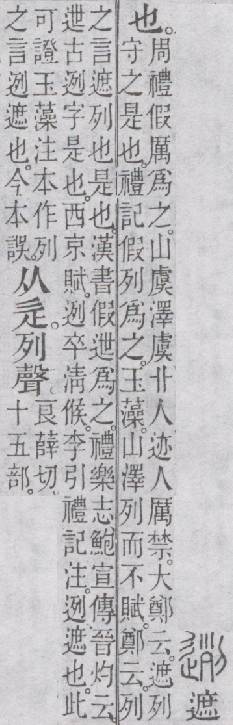 迾遮
也。
周禮假厲爲之。山虞澤虞卝人迹人厲禁。大鄭云。遮列
守之是也。禮記假列爲之。玉藻。山澤列而不賦。鄭云。列
之言遮列也是也。漢書假迣爲之。禮樂志鮑宣傳晉灼云
迣古迾字是也。西京賦。迾卒淸候。李引禮記注。迾遮也。此
可證玉藻注本作列
之言迾遮也。今本誤。
从辵。列聲
良薛切
十五部。